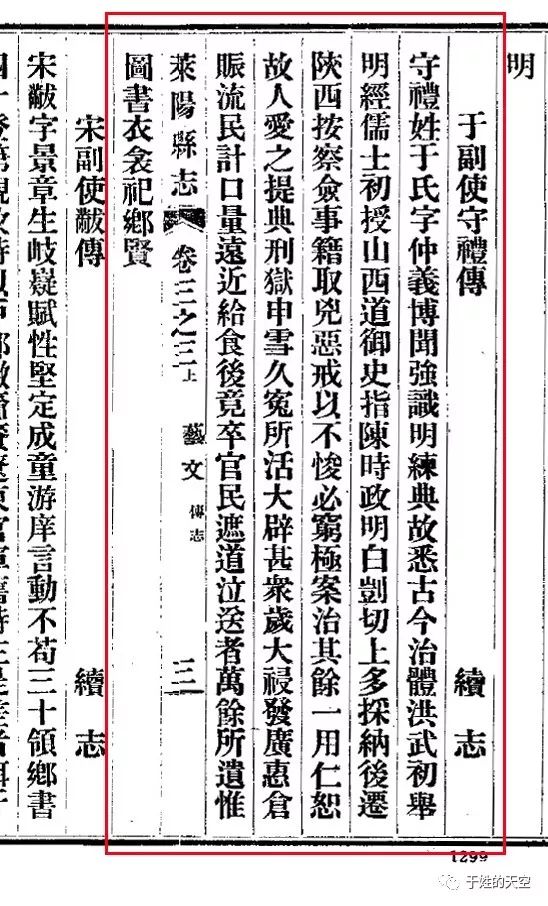 明
于副使守禮傳 續志
守禮姓于氏字仲義博聞強識明練典故悉古今治體洪武初舉
明經儒士初授山西道御史指陳時政明白剴切上多採納後遷
陝西按察僉事籍取兇惡戒以不悛必窮極案治其餘一用仁恕
故人愛之提典刑獄申雪久冤所活大辟甚衆歲大祲發廣惠倉
賑流民計口量遠近給食後竟卒官民遮道泣送者萬餘所遺惟
萊陽縣志 卷三之三上 藝文 傳志 三
圖書衣衾祀鄉賢
宋副使黻傳 續志
宋黻字景章生岐嶷賦性堅定成童游庠言動不苟三十領鄉書
1299
于姓的天空